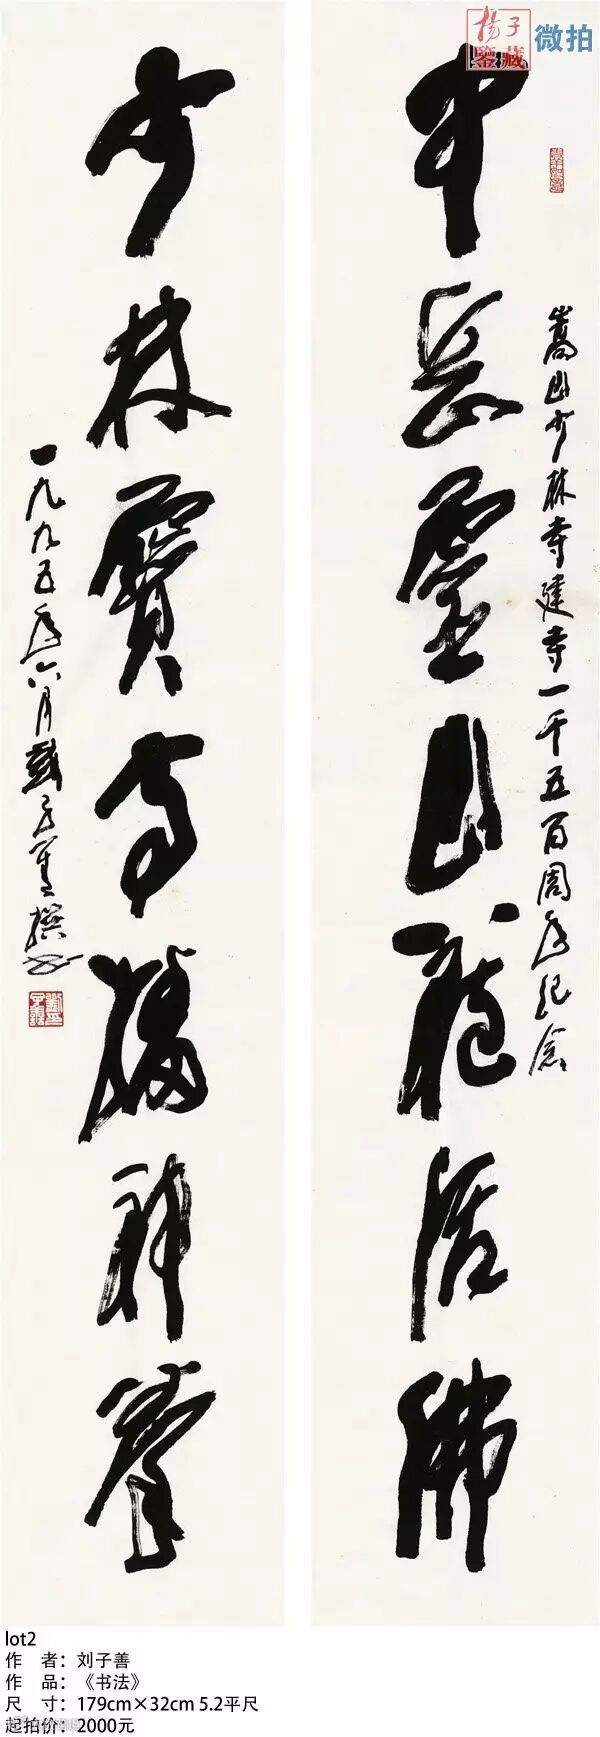 揚子
鑒藏
微拍
中岳靈山活佛
嵩山少林寺建寺一千五百周年纪念
少林寶寺神拳
一九九五年六月劉子善撰书
lot2
作 者：刘子善
作 品：《书法》
尺 寸：179cm×32cm 5.2平尺
起拍价：2000元